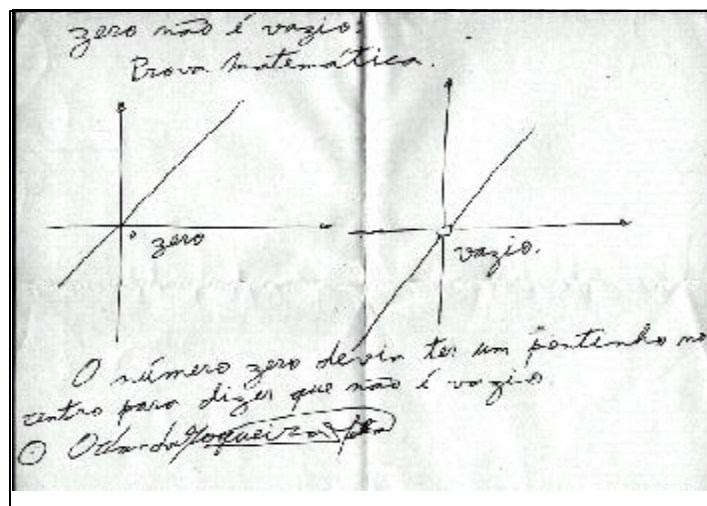 zero não é vazio.
Prova Matemática.
zero
vazio.
O número zero devia ter um pontinho no
centro para dizer que não é vazio.